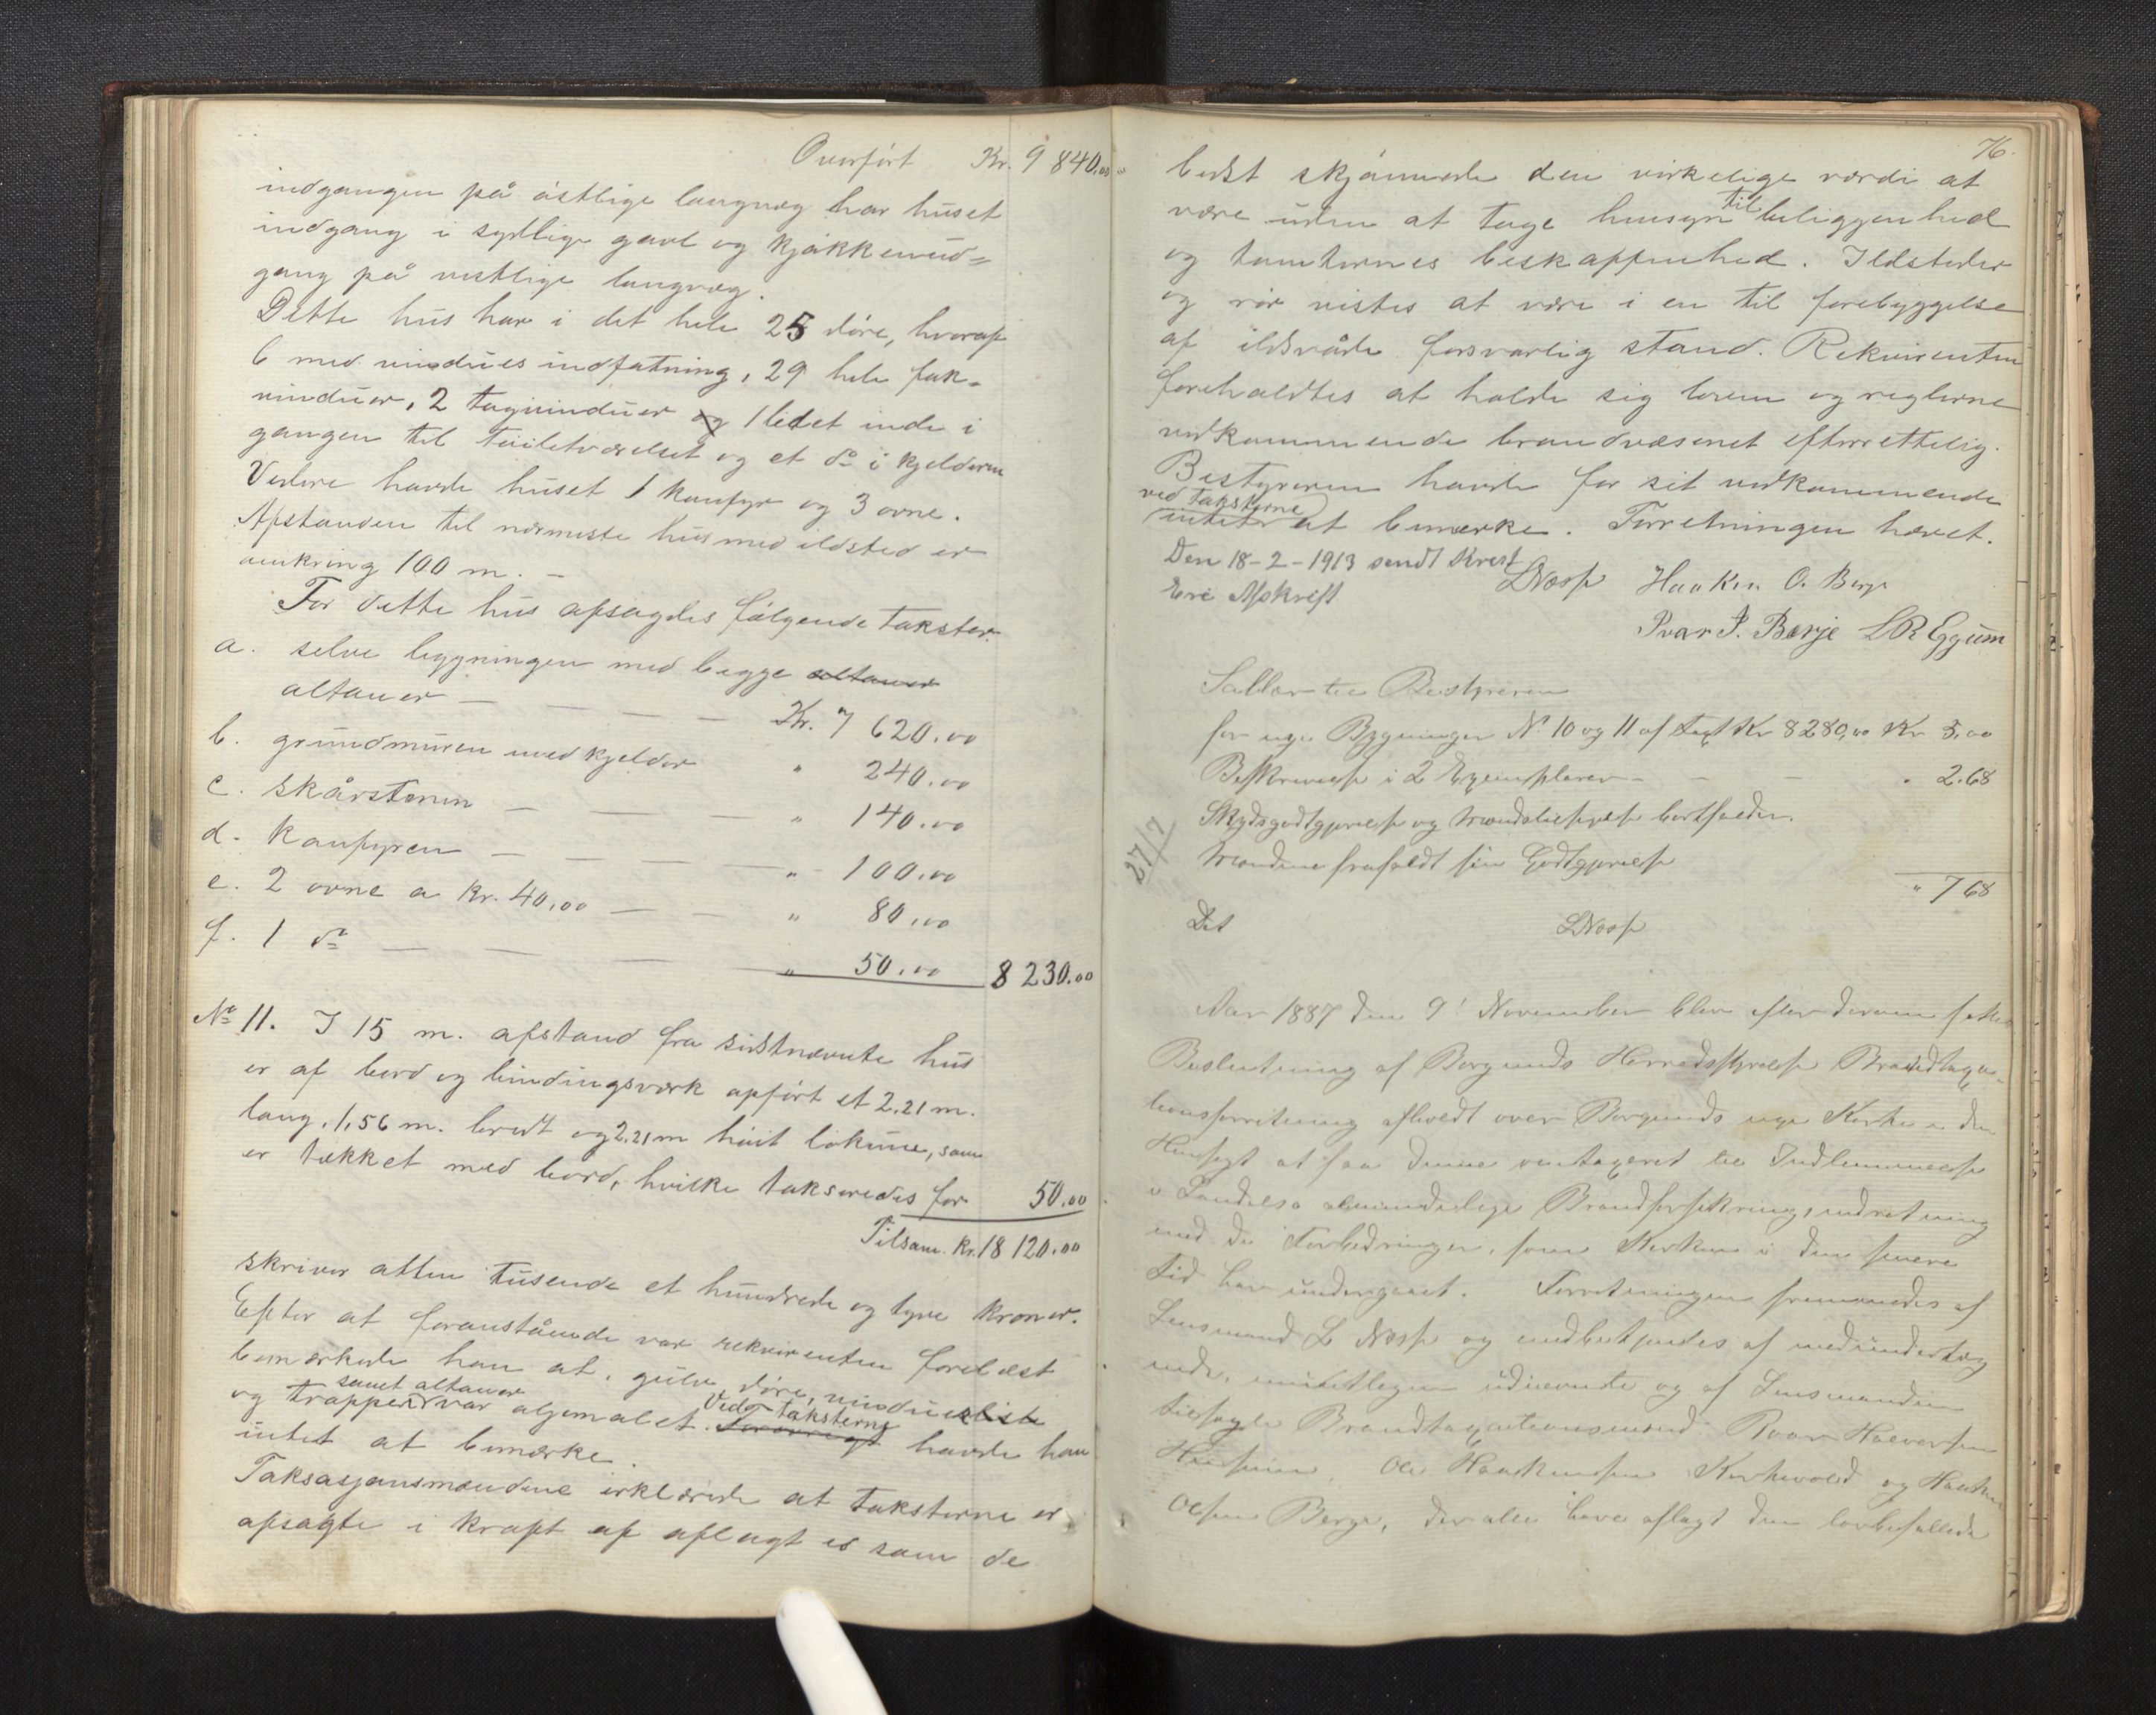 Overført Kr. 9 840.00
indgangen på østlige langvæg har huset
indgang i sydlige gavl og kjøkkenud=
gang på vestlige langvæg.
Dette hus har i det hele 25 døre, hvoraf
6 med vindues indfatning, 29 hele fak-
vinduer, 2 tagvinduer og 1 lidet inde i
gangen til toiletværelset og et do i kjelderen
Videre havde huset 1 komfyr og 3 ovne.
Afstanden til nærmeste hus med ildsted er
omkring 100 m. –
For dette hus afsagdes følgende takster.
a. selve bygningen med begge altaner
altaner — — — — Kr. 7 620.00
b. grundmuren med kjelder " 240.00
c. skårstenen — — — " 140.00
d. komfyren — — — — " 100.00
e. 2 ovne a kr. 40,00 — — " 80.00
f. 1 do — — — — " 50.00 8 230.00
No 11. I 15 m. afstand fra sidstnævnte hus
er af bord og bindingsværk opført et 2,21 m.
lang, 1,56 m. bredt og 2,21 m høit lokume, som
er tækket med bord, hvilke takseredes for 50.00
Tilsam. kr. 18 120.00
skriver atten tusende et hundrede og tyve kroner.
Efter at foranstående var rekvirenten forelæst
bemærkede han at, gulv, døre, vinduer
samt altaner
og trapper var oljemalet. Ved taksterne havde han
intet at bemærke.
Taksasjonsmændene erklærede at taksterne er
afsagte i kraft af aflagt ed som de
76.
bedst skjønnede den virkelige værdi at
være uden at tage hensyn til beliggenhed
og tomternes beskaffenhed. Ildsteder
og rør vistes at være i en til forebyggelse
af ildsvåde forsvarlig stand. Rekvirenten
foreholdtes at holde sig loven og reglerne
vedkommende brandvæsenet efterrettelig.
Bestyreren havde for sit vedkommende
ved taksterne
intet at bemærke. Forretningen hævet.
Den 18-2-1913 sendt Krest
Eri Afskrift
LNæss Haaken O. Berge
Ivar J. Berge LR Eggum
Sallær til Bestyreren
for nye Bygninger No 10 og 11 af Taxt Kr 8280,00 Kr 5,00
Beskrivelse i 2 Exemplarer – – – " 2.68
Skydsgodtgjørelse og Mandstilsigelse bortfalder.
27/7
Mændene frafaldt sin Godtgjørelse
" 7 68
Dat LNæss
Aar 1887 den 9' November blev efter derom fattet
Beslutning af Borgunds Herredsstyrelse Brandtaxa-
tionsforretning afholdt over Borgunds nye Kirke i den
Hensigt at faa denne omtaxeret til Indlemmelse
i Landets almindelige Brandforsikringsindretning
med de Forbedringer, som Kirken i den senere
Tid har undergaaet. Forretningen fremmedes af
Lensmand L Næss og medbetjentes af medunderteg
nede, retslegen udnævnte og af Lensmanden
tilsagte Brandtaxationsmænd: Roar Halvorsen
Ole Haakensen Kirkevold og Haaken
Olsen Berge, der alle have aflagt den lovbefallede